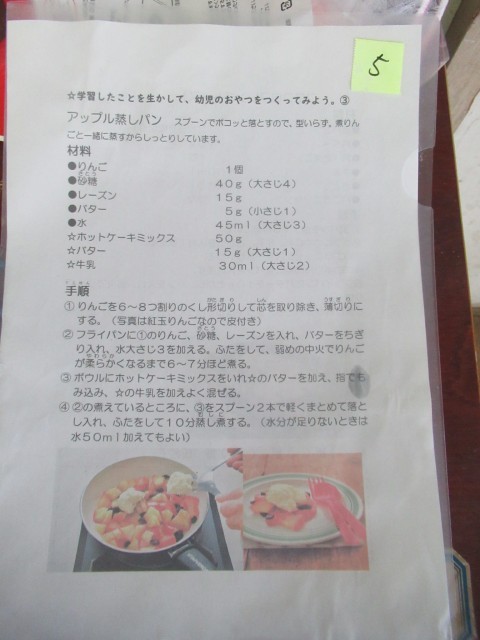 5
☆学習したことを生かして、幼児のおやつをつくってみよう。③
アップル蒸しパン スプーンでポコッと落とすので、型いらず。煮りん
ごと一緒に蒸すからしっとりしています。
材料
●りんご 1個
●砂糖 40g(大さじ4)
●レーズン 15g
●バター 5g(小さじ1)
●水 45ml(大さじ3)
☆ホットケーキミックス 50g
☆バター 15g(大さじ1)
☆牛乳 30ml(大さじ2)
手順
①りんごを6~8つ割りのくし形切りして芯を取り除き、薄切りに
する。(写真は紅玉りんごなので皮付き)
②フライパンに①のりんご、砂糖、レーズンを入れ、バターをちぎ
り入れ、水大さじ3を加える。ふたをして、弱めの中火でりんご
が柔らかくなるまで6~7分ほど煮る。
③ボウルにホットケーキミックスをいれ☆のバターを加え、指でも
み込み、☆の牛乳を加えよく混ぜる。
④②の煮えているところに、③をスプーン2本で軽くまとめて落と
し入れ、ふたをして10分蒸し煮する。(水分が足りないときは
水50ml加えてもよい)